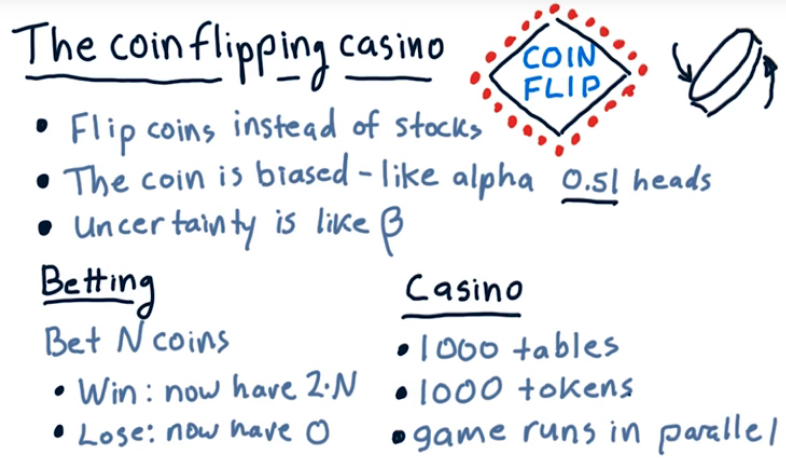 The coin flipping casino
COIN
FLIP
• Flip coins instead of stocks
• The coin is biased - like alpha 0.51 heads
• Uncertainty is like β
Betting
Bet N coins
• Win: now have 2·N
• Lose: now have 0
Casino
• 1000 tables
• 1000 tokens
• game runs in parallel